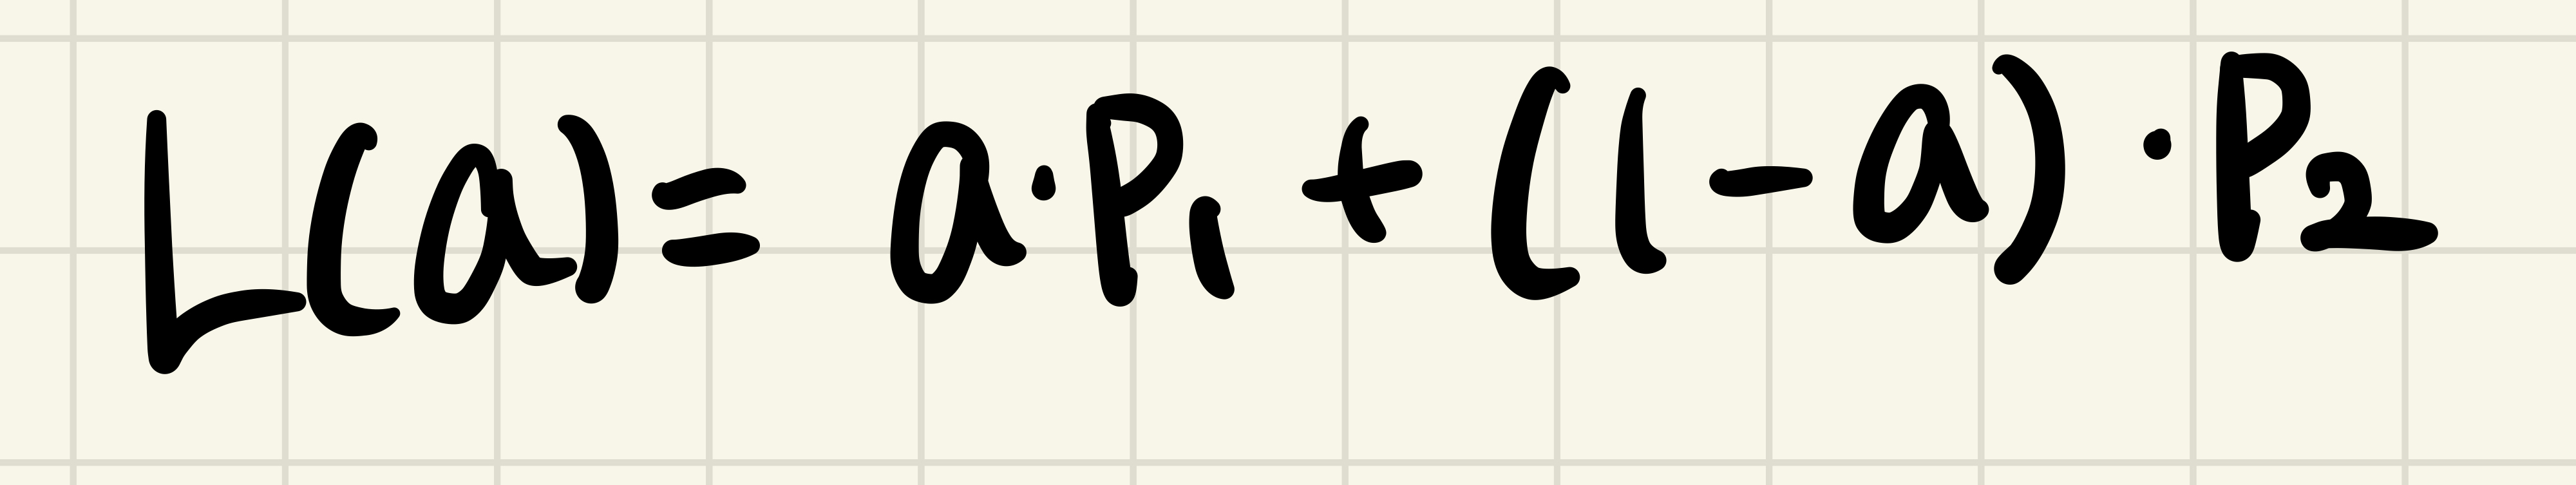 L(a) = a · P₁ + (1 - a) · P₂